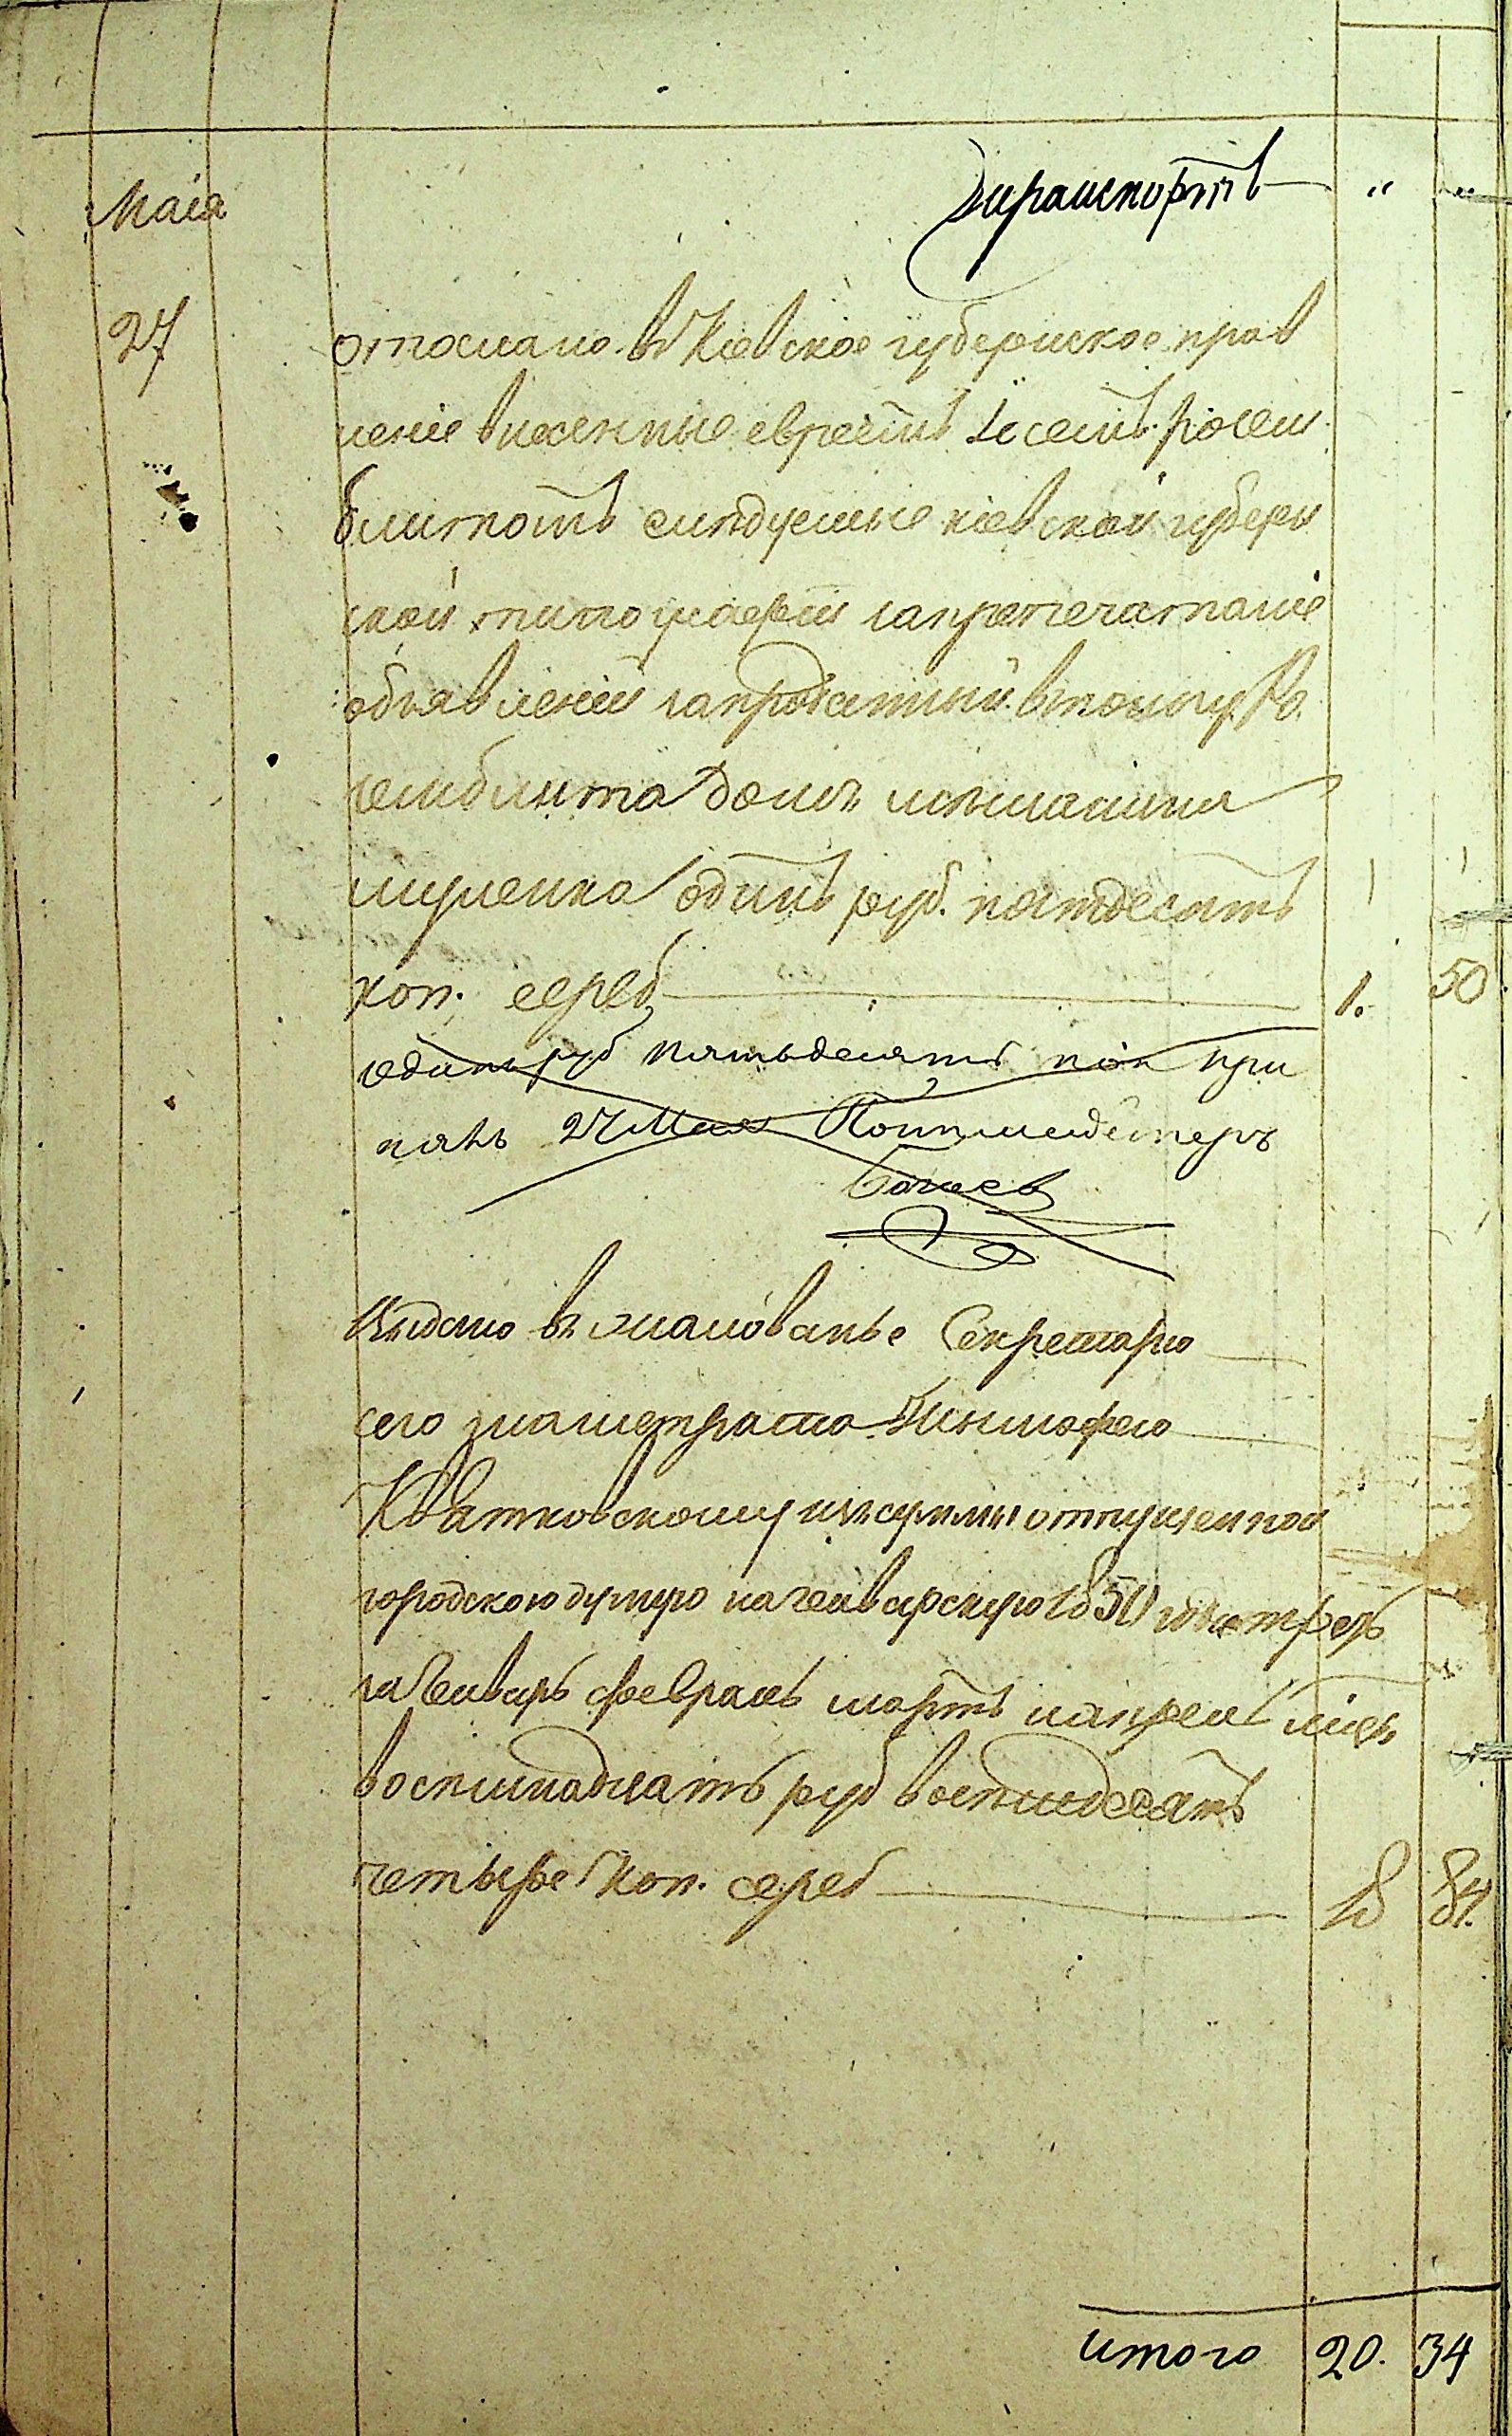 Транспортъ " "
Маія
27
отослано въ Кіевское губернское прав
леніе внесенные евреемъ Іосемъ Розен
блитомъ следуемые кіевской губерн
ской типографіи за препечатаніе
объявленій запродажный втомуже Ро
зенблита домъ мѣщанина
одинъ руб. пятдесятъ
коп. сереб 1. 50
один руб пятьдесятъ коп при
нялъ 27 Мая Почтмейстеръ
Выдано въ жалованье Секретарю
сего магистрата Тимофею
Кватковскому изъ суммы отпущенной
городскою думою на генварскую 1850 года треть
за Генварь февраль мартъ и апрель мцы
воснімнадцать руб воснімдесятъ
четыре коп. сереб 18 84.
итого 20. 34